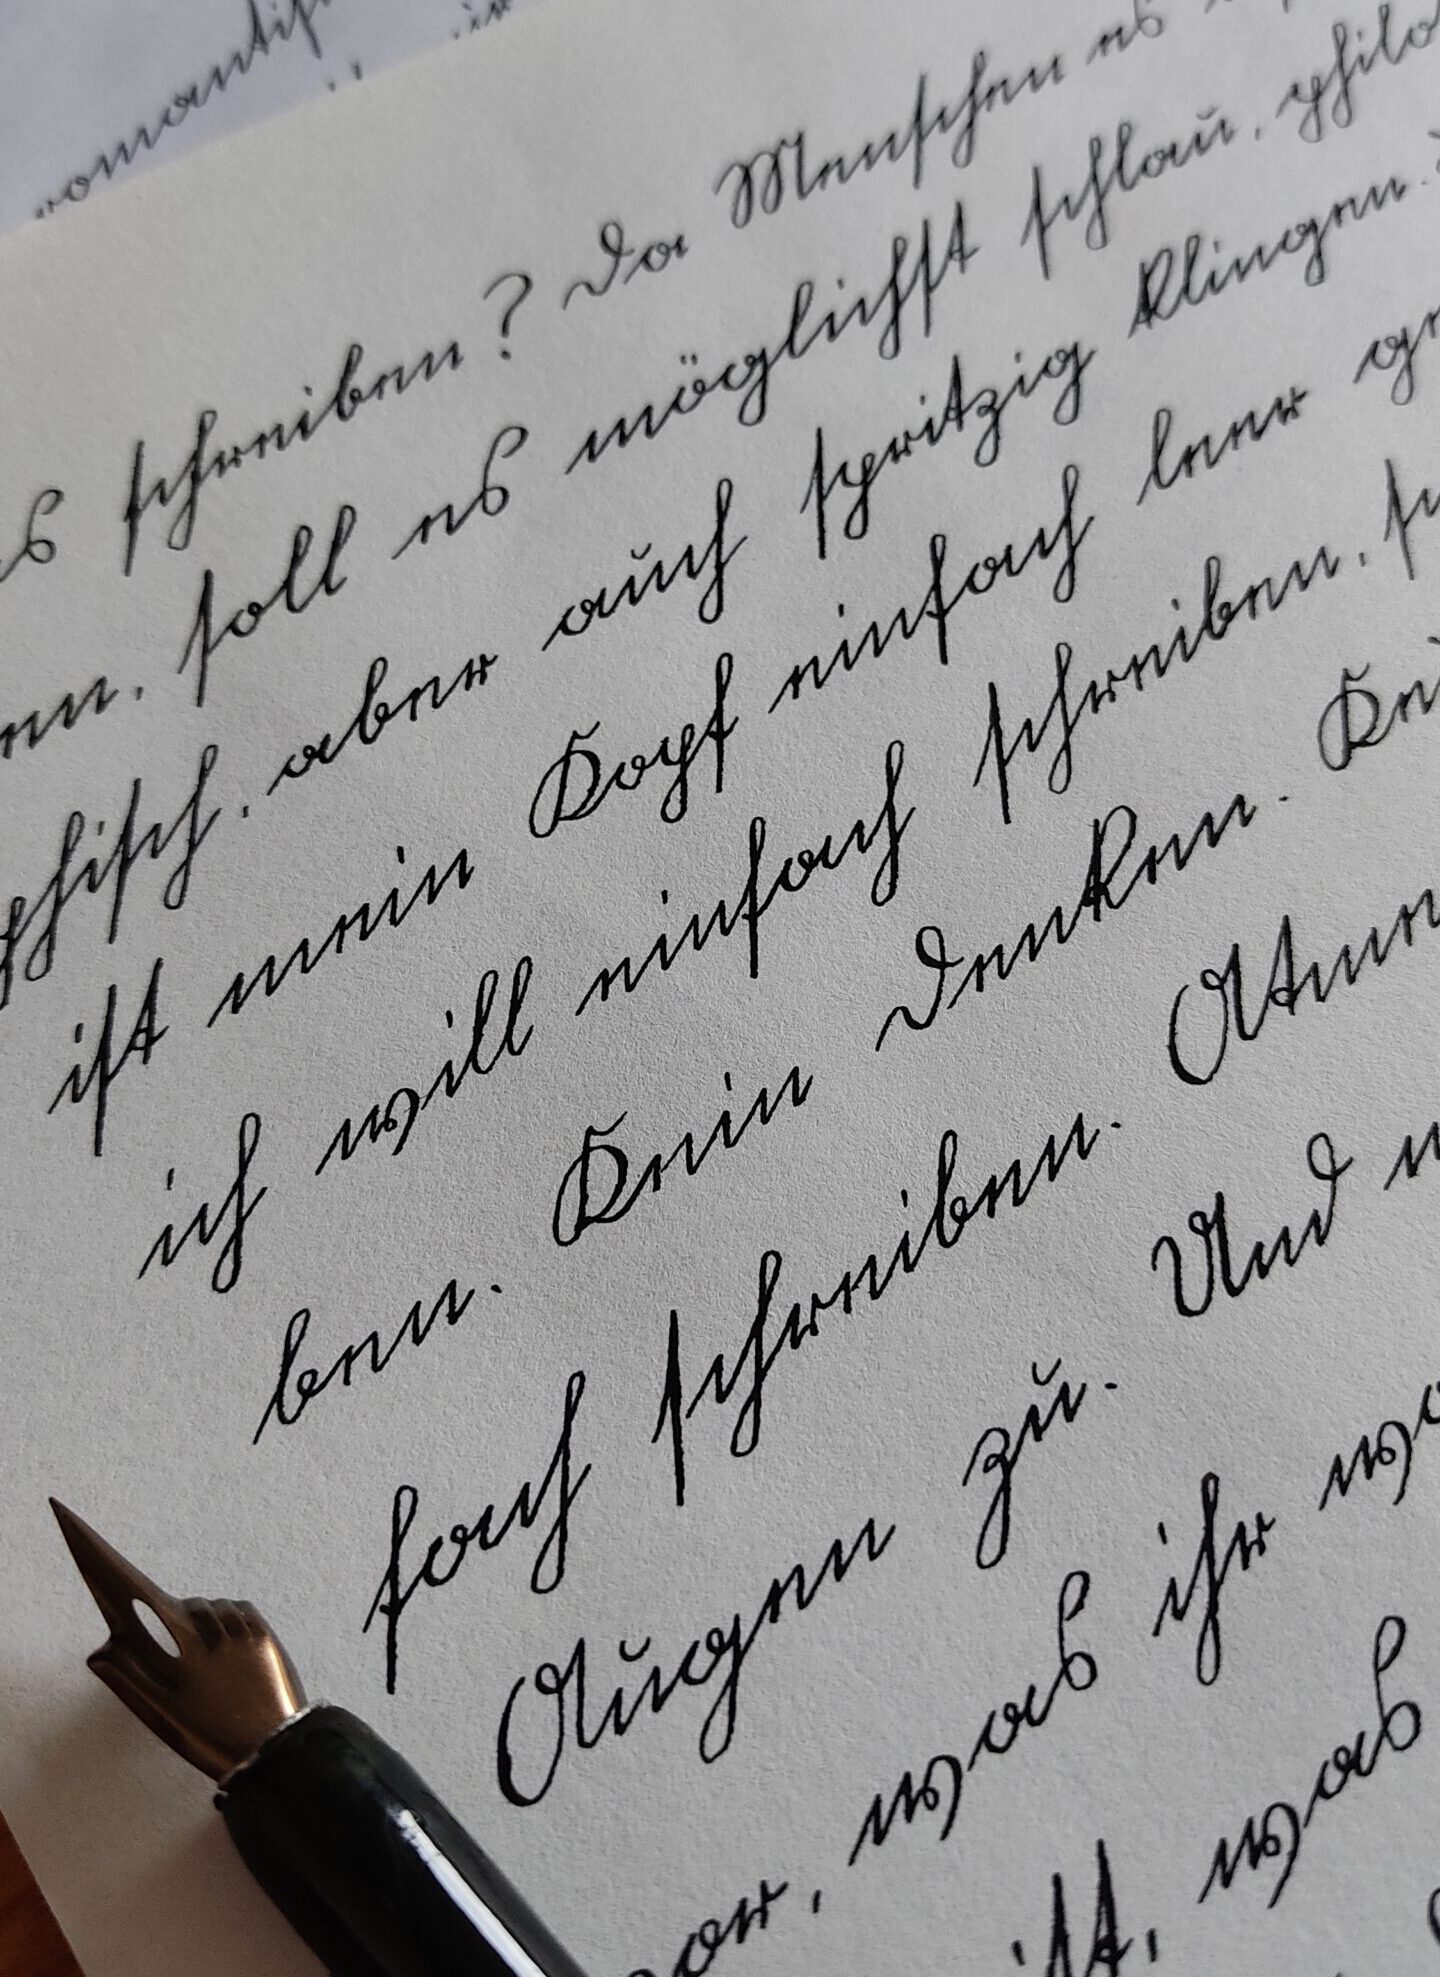 romanti
schreiben? Da Menschen es
soll es möglichst schlau, philo
phisch, aber auch spritzig klingen.
ist mein Kopf einfach leer
ich will einfach schreiben,
ben. Kein Denken.
fach schreiben. Atme
Augen zu. Und
vor, was ihr
ist, was